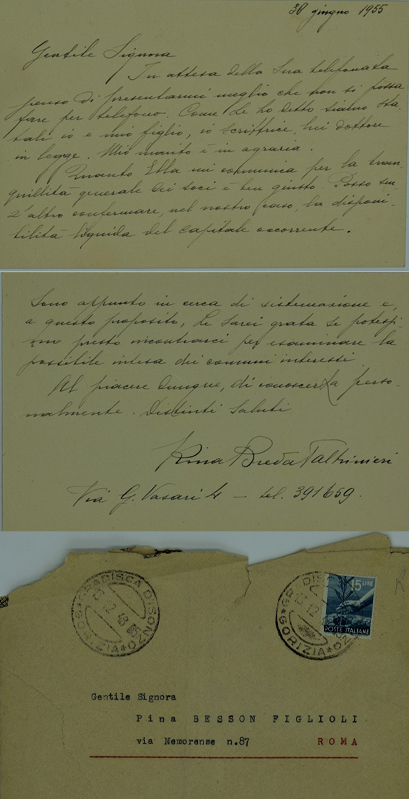 30 giugno 1955
Gentile Signora
In attesa della Sua telefonata
penso di presentarmi meglio che non si possa
fare per telefono. Come Le ho detto siamo sta
tali io e mio figlio, io scrittrice, lui dottore
in legge. Mio marito è in agraria.
Quanto Ella mi comunica per la tran
quillità generale dei soci è ben giusto. Posso sen
z'altro confermare, nel nostro caso, la disponi
bilità liquida del capitale occorrente.
Sono appunto in cerca di sistemazione e,
a questo proposito, Le sarei grata se potessi
mo presto incontrarci per esaminare la
possibile intesa dei comuni interessi.
Al piacere dunque, di conoscerLa perso-
nalmente. Distinti saluti
Rina Breda Paltrinieri
Via G. Vasari 4 - tel. 391659.
GRADISCA D'ISONZO
GORIZIA
GRADISCA D'ISONZO
GORIZIA
15 LIRE
POSTE ITALIANE
Gentile Signora
Pina BESSON FIGLIOLI
via Nemorense n.87 ROMA